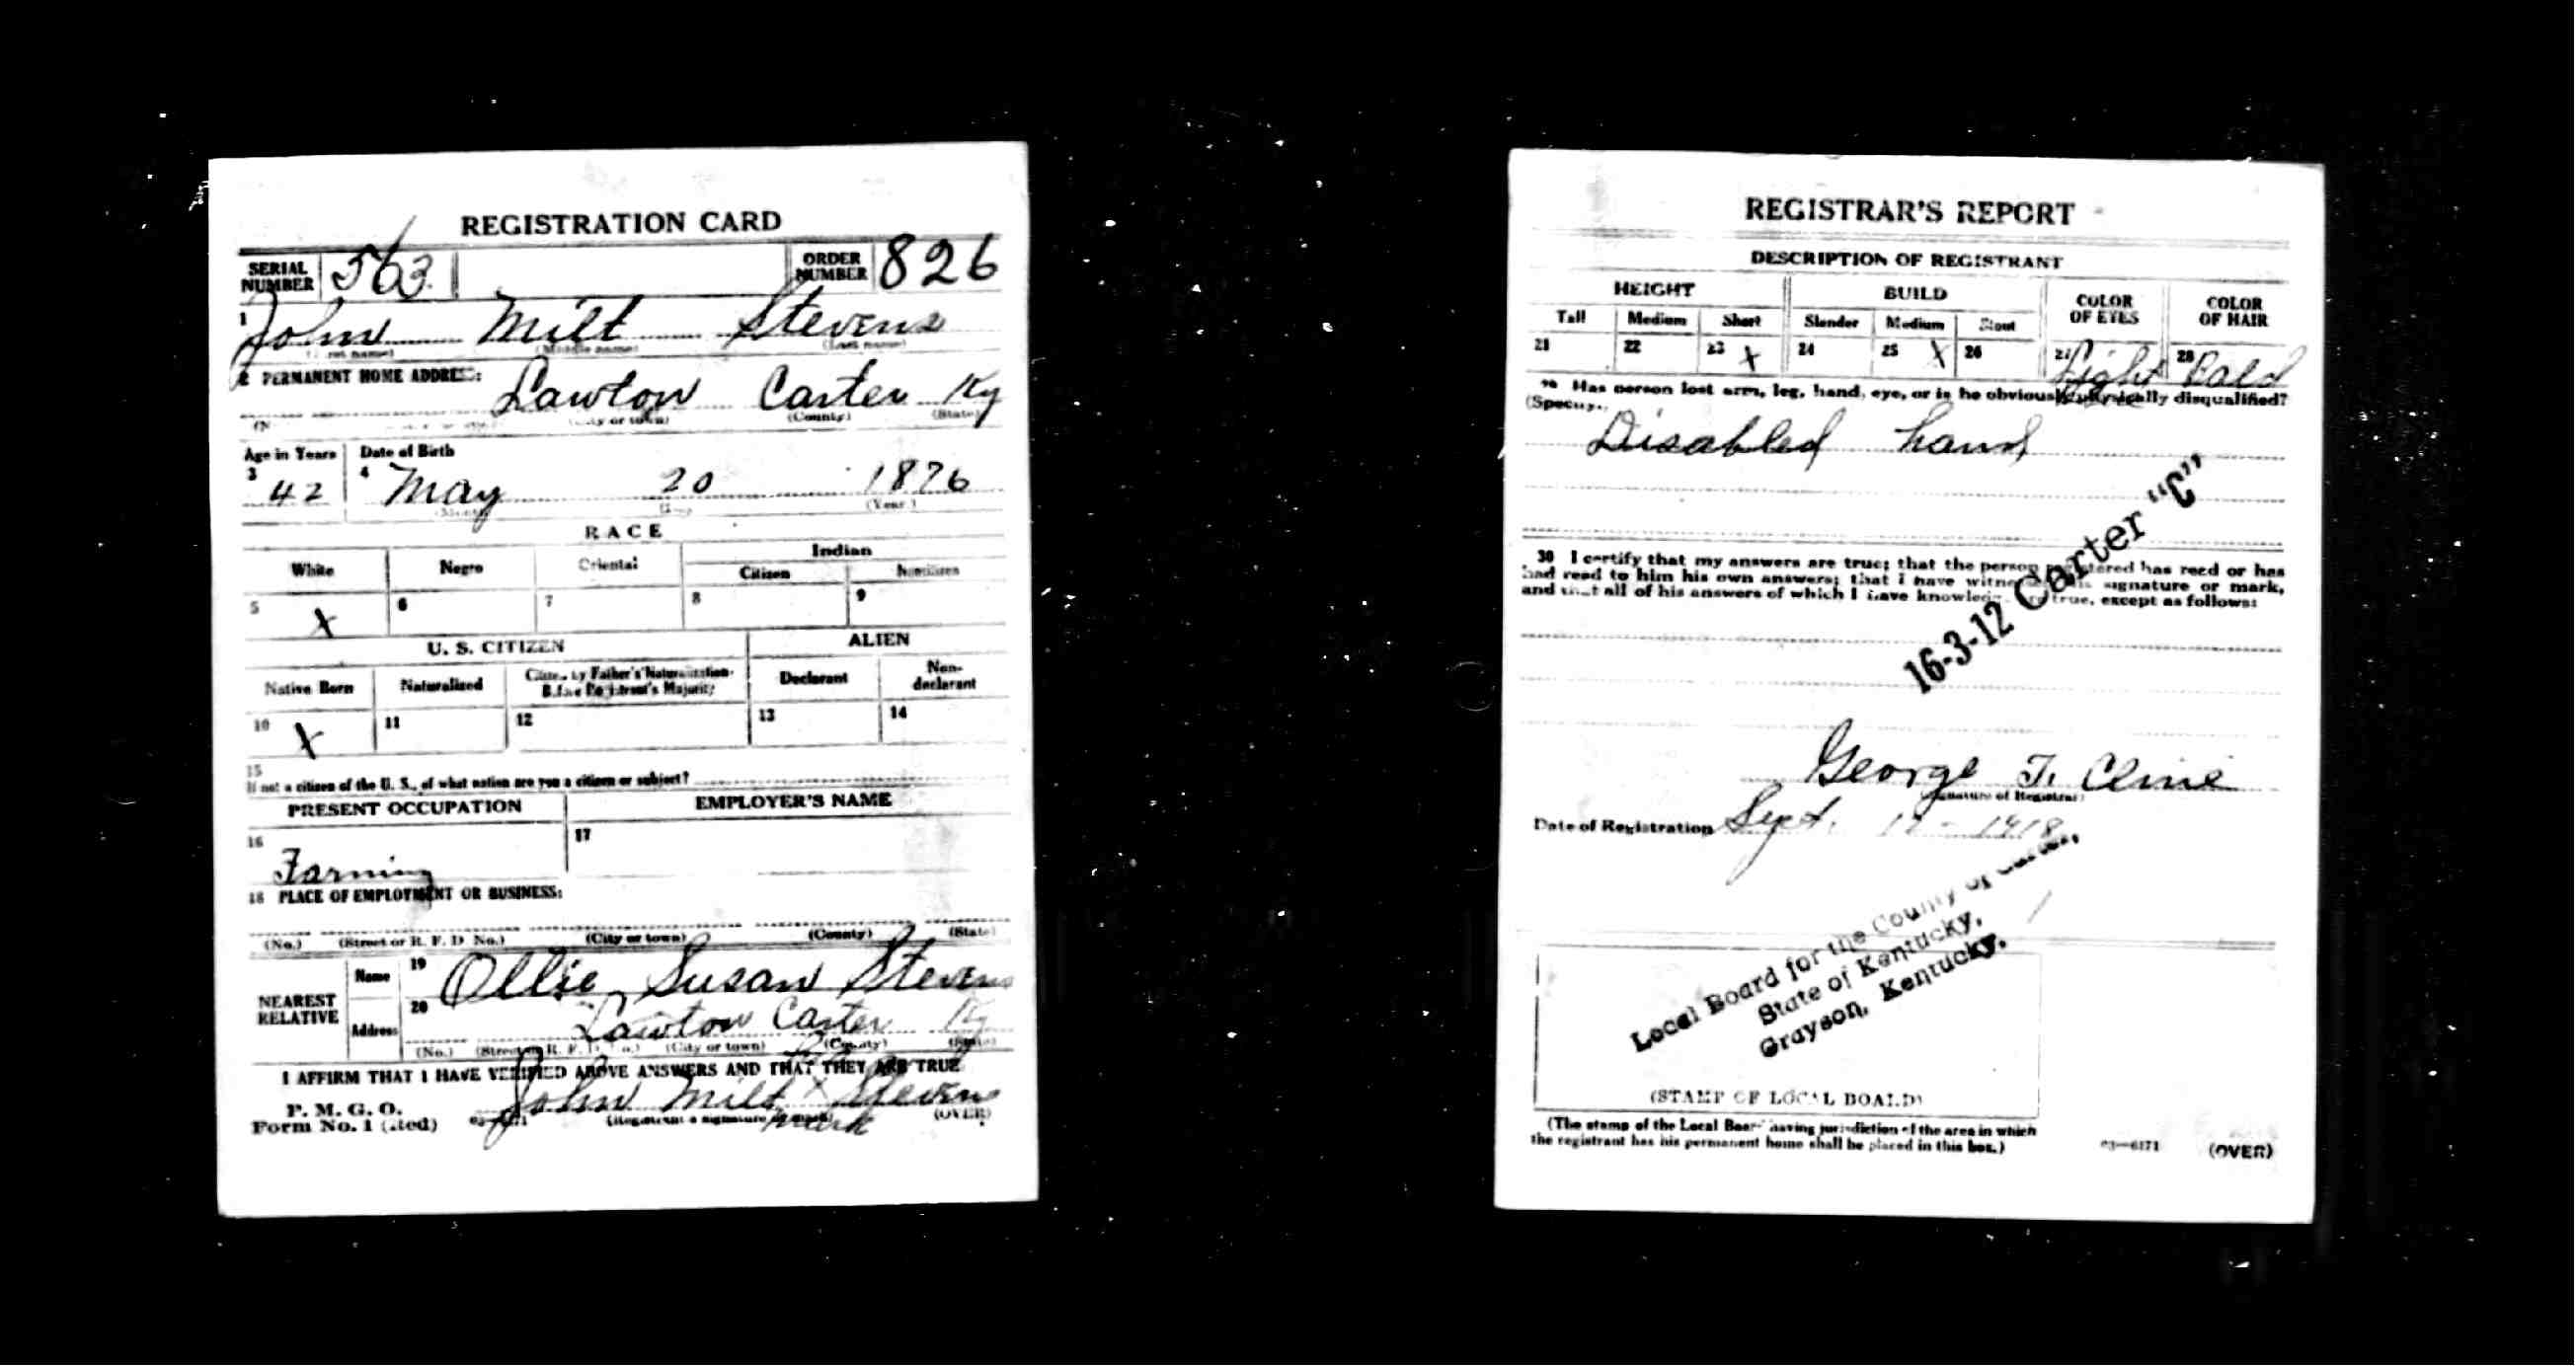 REGISTRATION CARD
SERIAL NUMBER 563 ORDER NUMBER 826
1 John Milt Stevens
(First name) (Middle name) (Last name)
2 PERMANENT HOME ADDRESS:
Lawton Carter Ky
(City or town) (County) (State)
Age in Years Date of Birth
3 42 4 May 20 1876
(Month) (Day) (Year)
RACE
White Negro Oriental Indian
Citizen Noncitizen
5 X 6 7 8 9
U. S. CITIZEN ALIEN
Native Born Naturalized Citizen by Father's Naturalization Before Registrant's Majority Declarant Non-declarant
10 X 11 12 13 14
15
If not a citizen of the U. S., of what nation are you a citizen or subject?
PRESENT OCCUPATION EMPLOYER'S NAME
16 Farming 17
18 PLACE OF EMPLOYMENT OR BUSINESS:
(No.) (Street or R. F. D. No.) (City or town) (County) (State)
NEAREST RELATIVE Name 19 Ollie Susan Stevens
Address 20 Lawton Carter Ky
(No.) (Street or R. F. D. No.) (City or town) (County) (State)
I AFFIRM THAT I HAVE VERIFIED ABOVE ANSWERS AND THAT THEY ARE TRUE
John Milt X Stevens
P. M. G. O.
Form No. 1 (Red) (Registrant's signature or mark) (OVER)
mark
REGISTRAR'S REPORT
DESCRIPTION OF REGISTRANT
HEIGHT BUILD COLOR OF EYES COLOR OF HAIR
Tall Medium Short Slender Medium Stout
21 22 23 X 24 25 X 26 27 Light 28 Bald
29 Has person lost arm, leg, hand, eye, or is he obviously physically disqualified?
(Specify.)
Disabled hand
30 I certify that my answers are true; that the person registered has read or has
had read to him his own answers; that I have witnessed his signature or mark,
and that all of his answers of which I have knowledge are true, except as follows:
16-3-12 Carter "C"
George T. Cline
(Signature of Registrar)
Date of Registration Sept. 12 - 1918
Local Board for the County of Carter,
State of Kentucky,
Grayson, Kentucky.
(STAMP OF LOCAL BOARD)
(The stamp of the Local Board having jurisdiction of the area in which
the registrant has his permanent home shall be placed in this box.)
03—6171 (OVER)